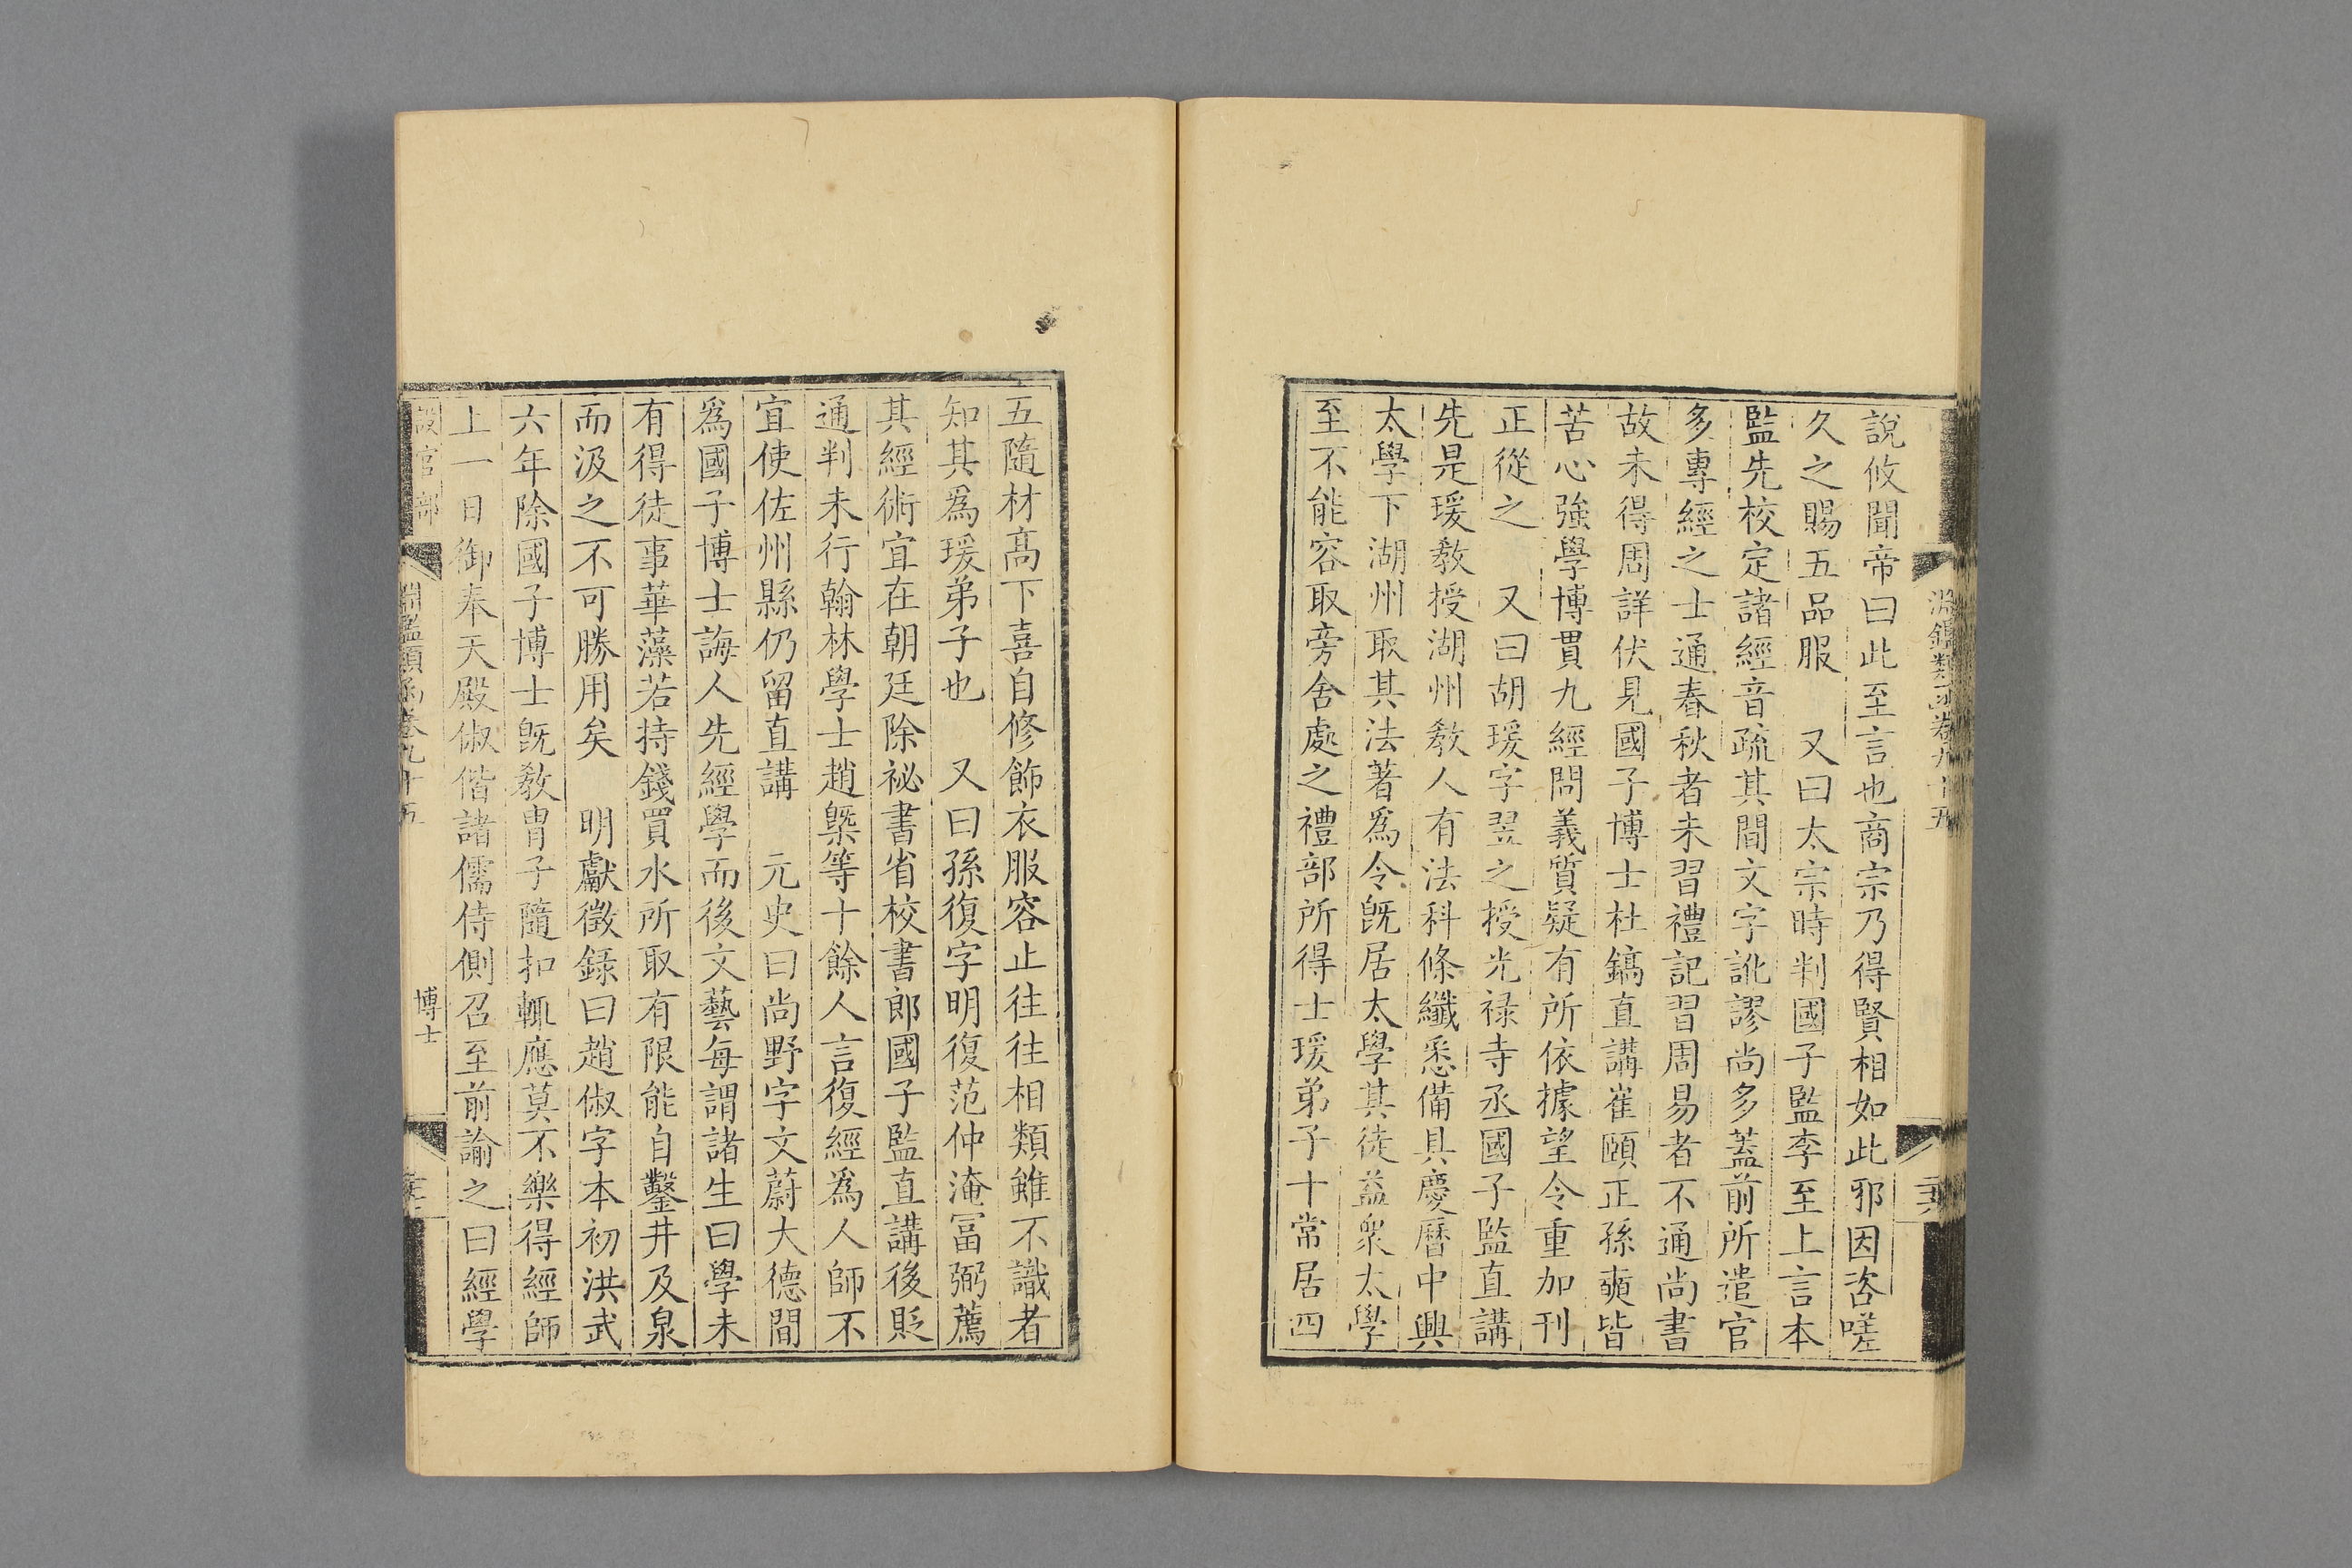 說攸聞帝曰此至言也商宗乃得賢相如此邪因咨嗟
久之賜五品服　又曰太宗時判國子監李至上言本
監先校定諸經音疏其間文字訛謬尚多蓋前所遣官
多專經之士通春秋者未習禮記習周易者不通尚書
故未得周詳伏見國子博士杜鎬直講崔頤正孫奭皆
苦心強學博貫九經問義質疑有所依據望令重加刊
正從之　又曰胡瑗字翌之授光祿寺丞國子監直講
先是瑗教授湖州教人有法科條纖悉備具慶曆中興
太學下湖州取其法著爲令旣居太學其徒益衆太學
至不能容取旁舍處之禮部所得士瑗弟子十常居四
五隨材高下喜自修飾衣服容止往往相類雖不識者
知其爲瑗弟子也　又曰孫復字明復范仲淹冨弼薦
其經術宜在朝廷除祕書省校書郎國子監直講後貶
通判未行翰林學士趙槩等十餘人言復經爲人師不
宜使佐州縣仍留直講　元史曰尚野字文蔚大德間
爲國子博士誨人先經學而後文藝每謂諸生曰學未
有得徒事華藻若持錢買水所取有限能自鑿井及泉
而汲之不可勝用矣　明獻徵錄曰趙俶字本初洪武
六年除國子博士旣教胄子隨扣輒應莫不樂得經師
上一日御奉天殿俶偕諸儒侍側召至前諭之曰經學
設官部
淵鑑類函卷九十五
博士
淵鑑類函卷九十五